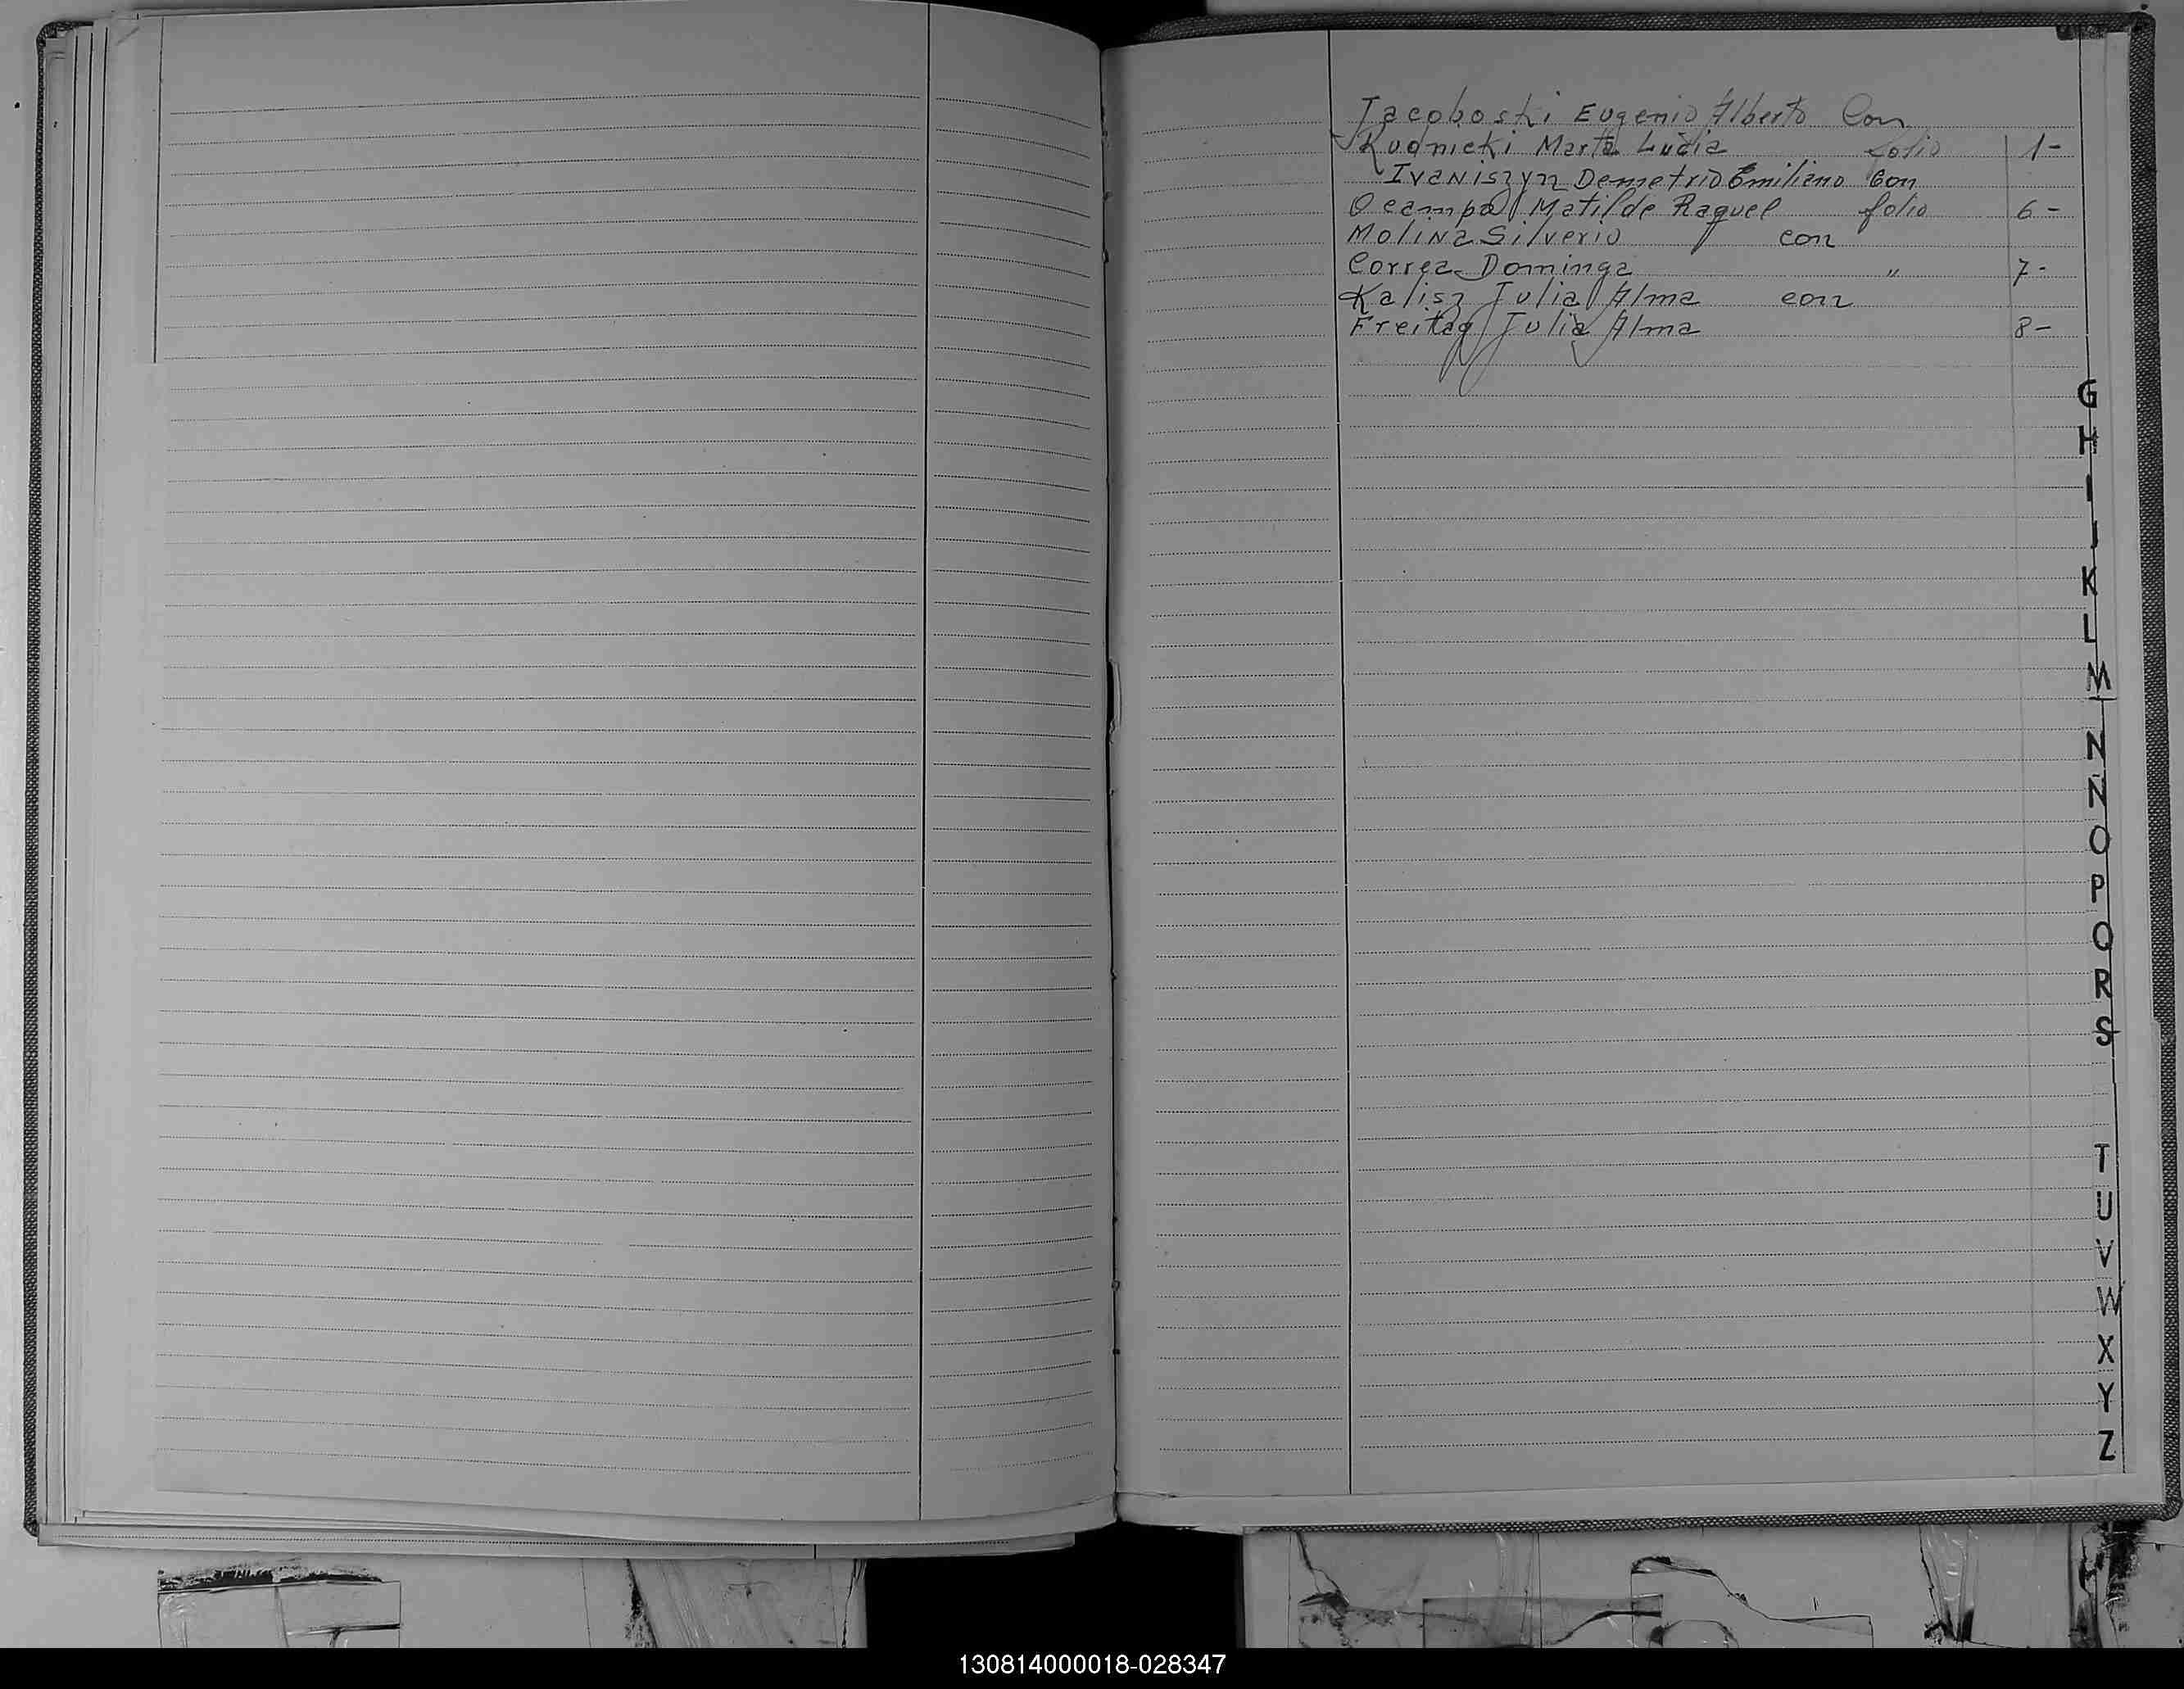 Jacoboski Eugenio Alberto Con
Rudnicki Marta Lucia folio 1-
Ivaniszyn Demetrio Emiliano Con
Ocampo Matilde Raquel folio 6-
Molina Silverio con
Correa Dominga " 7-
Kalisz Julia Alma con
Freitag Julia Alma 8-
G
H
I
J
K
L
M
N
N
O
P
Q
R
S
T
U
V
W
X
Y
Z
130814000018-028347